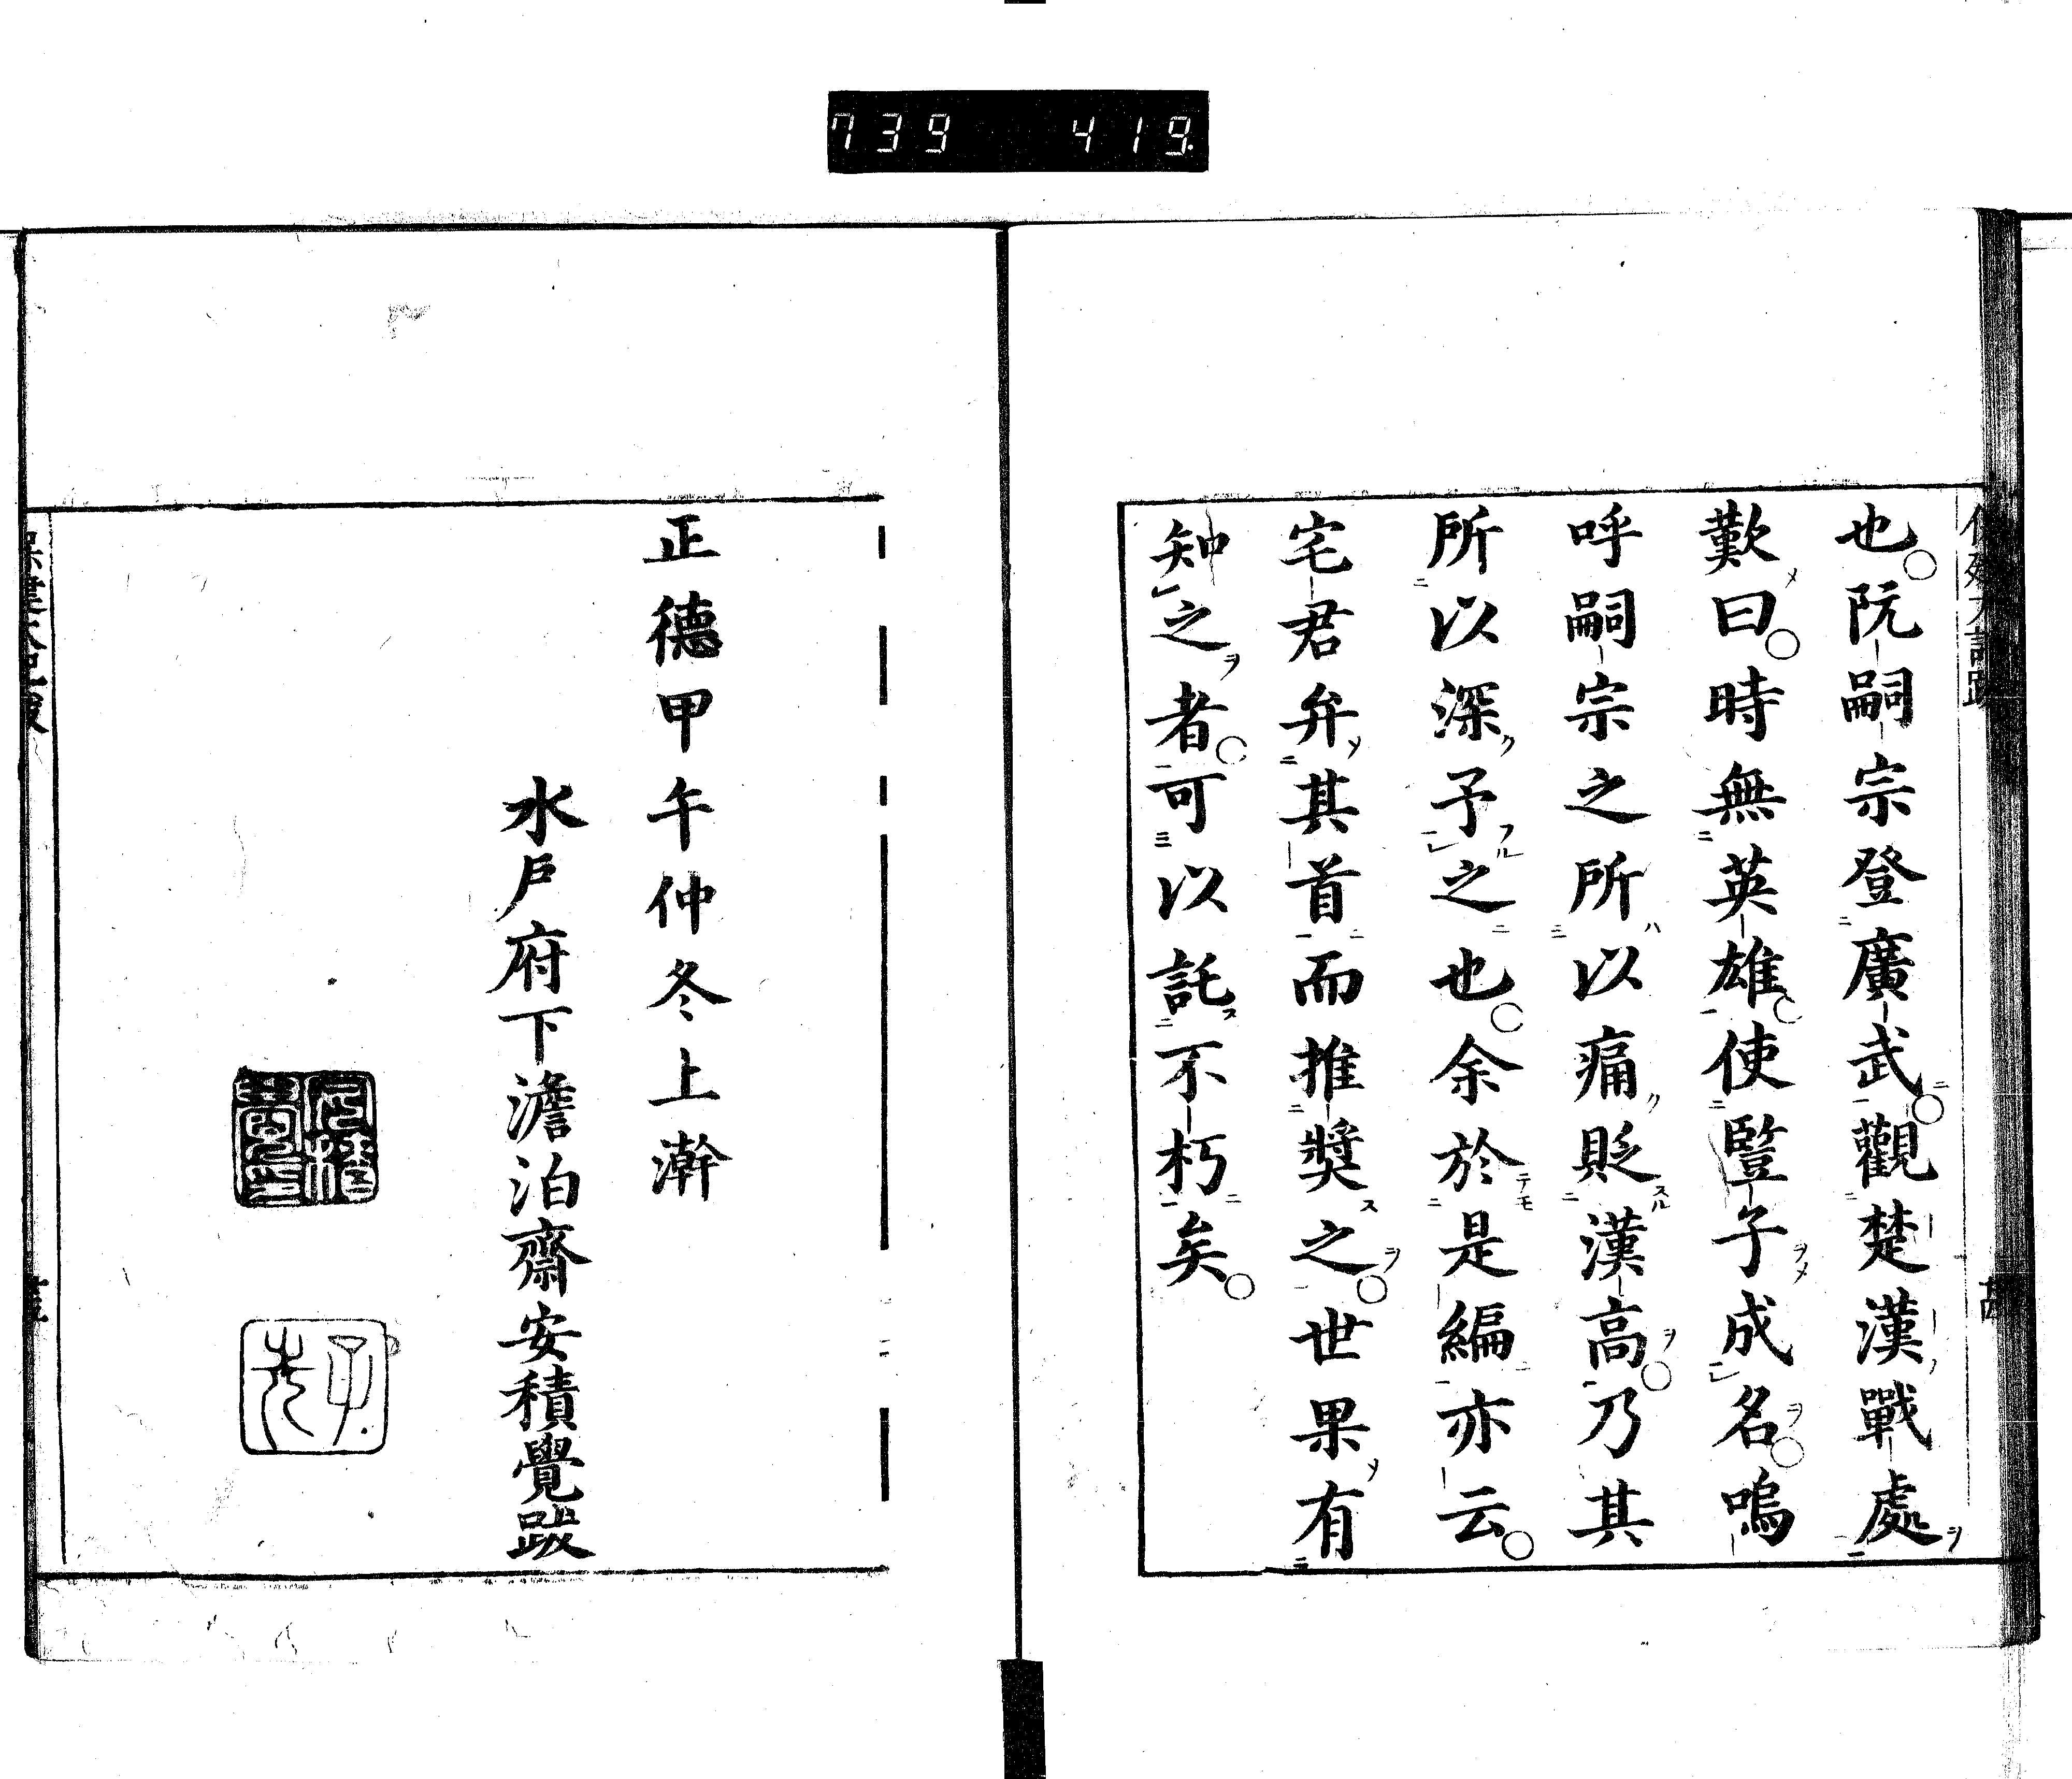 739 419
也阮嗣宗登廣武觀楚漢戰處
歎曰時無英雄使豎子成名嗚
呼嗣宗之所以痛貶漢高乃其
所以深予之也余於是編亦云
宅君弁其首而推奨之世果有
知之者可以託不朽矣
正德甲午仲冬上澣
水戶府下澹泊齋安積覺跋